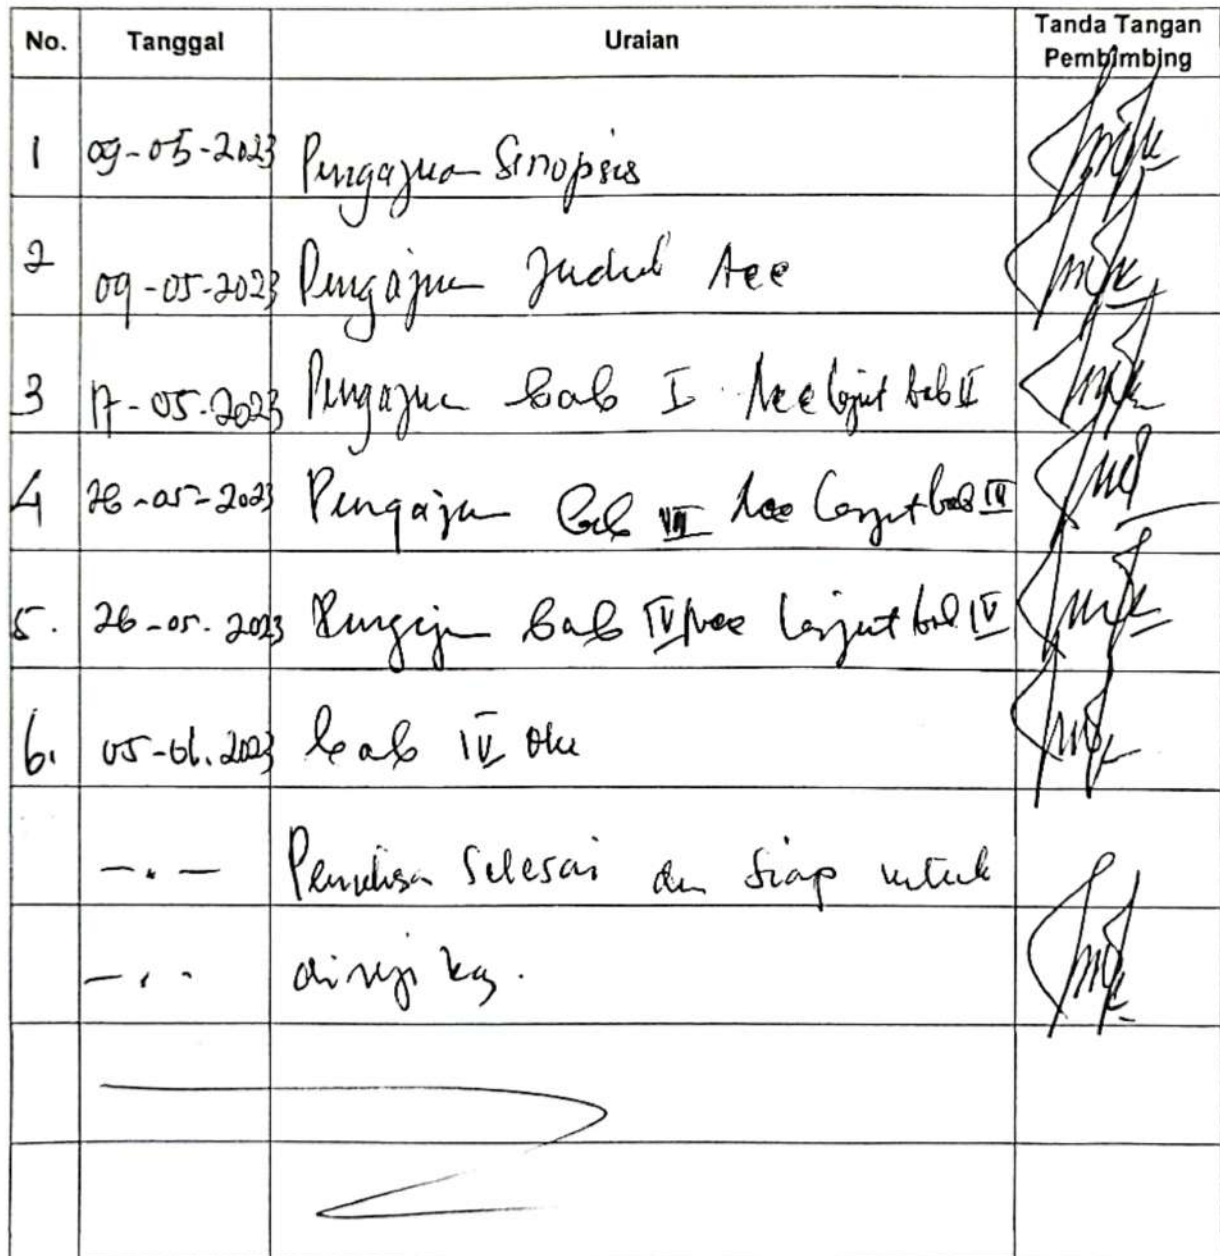 No. Tanggal Uraian Tanda Tangan
Pembimbing
1 09-05-2023 Pengajuan Sinopsis
2 09-05-2023 Pengajuan Judul Acc
3 17-05-2023 Pengajuan bab I Acc lanjut bab II
4 26-05-2023 Pengajuan bab III Acc lanjut bab IV
5. 26-05-2023 Pengajuan bab IV Acc lanjut bab IV
6. 05-06-2023 bab IV oke
Penulisan Selesai dan siap untuk